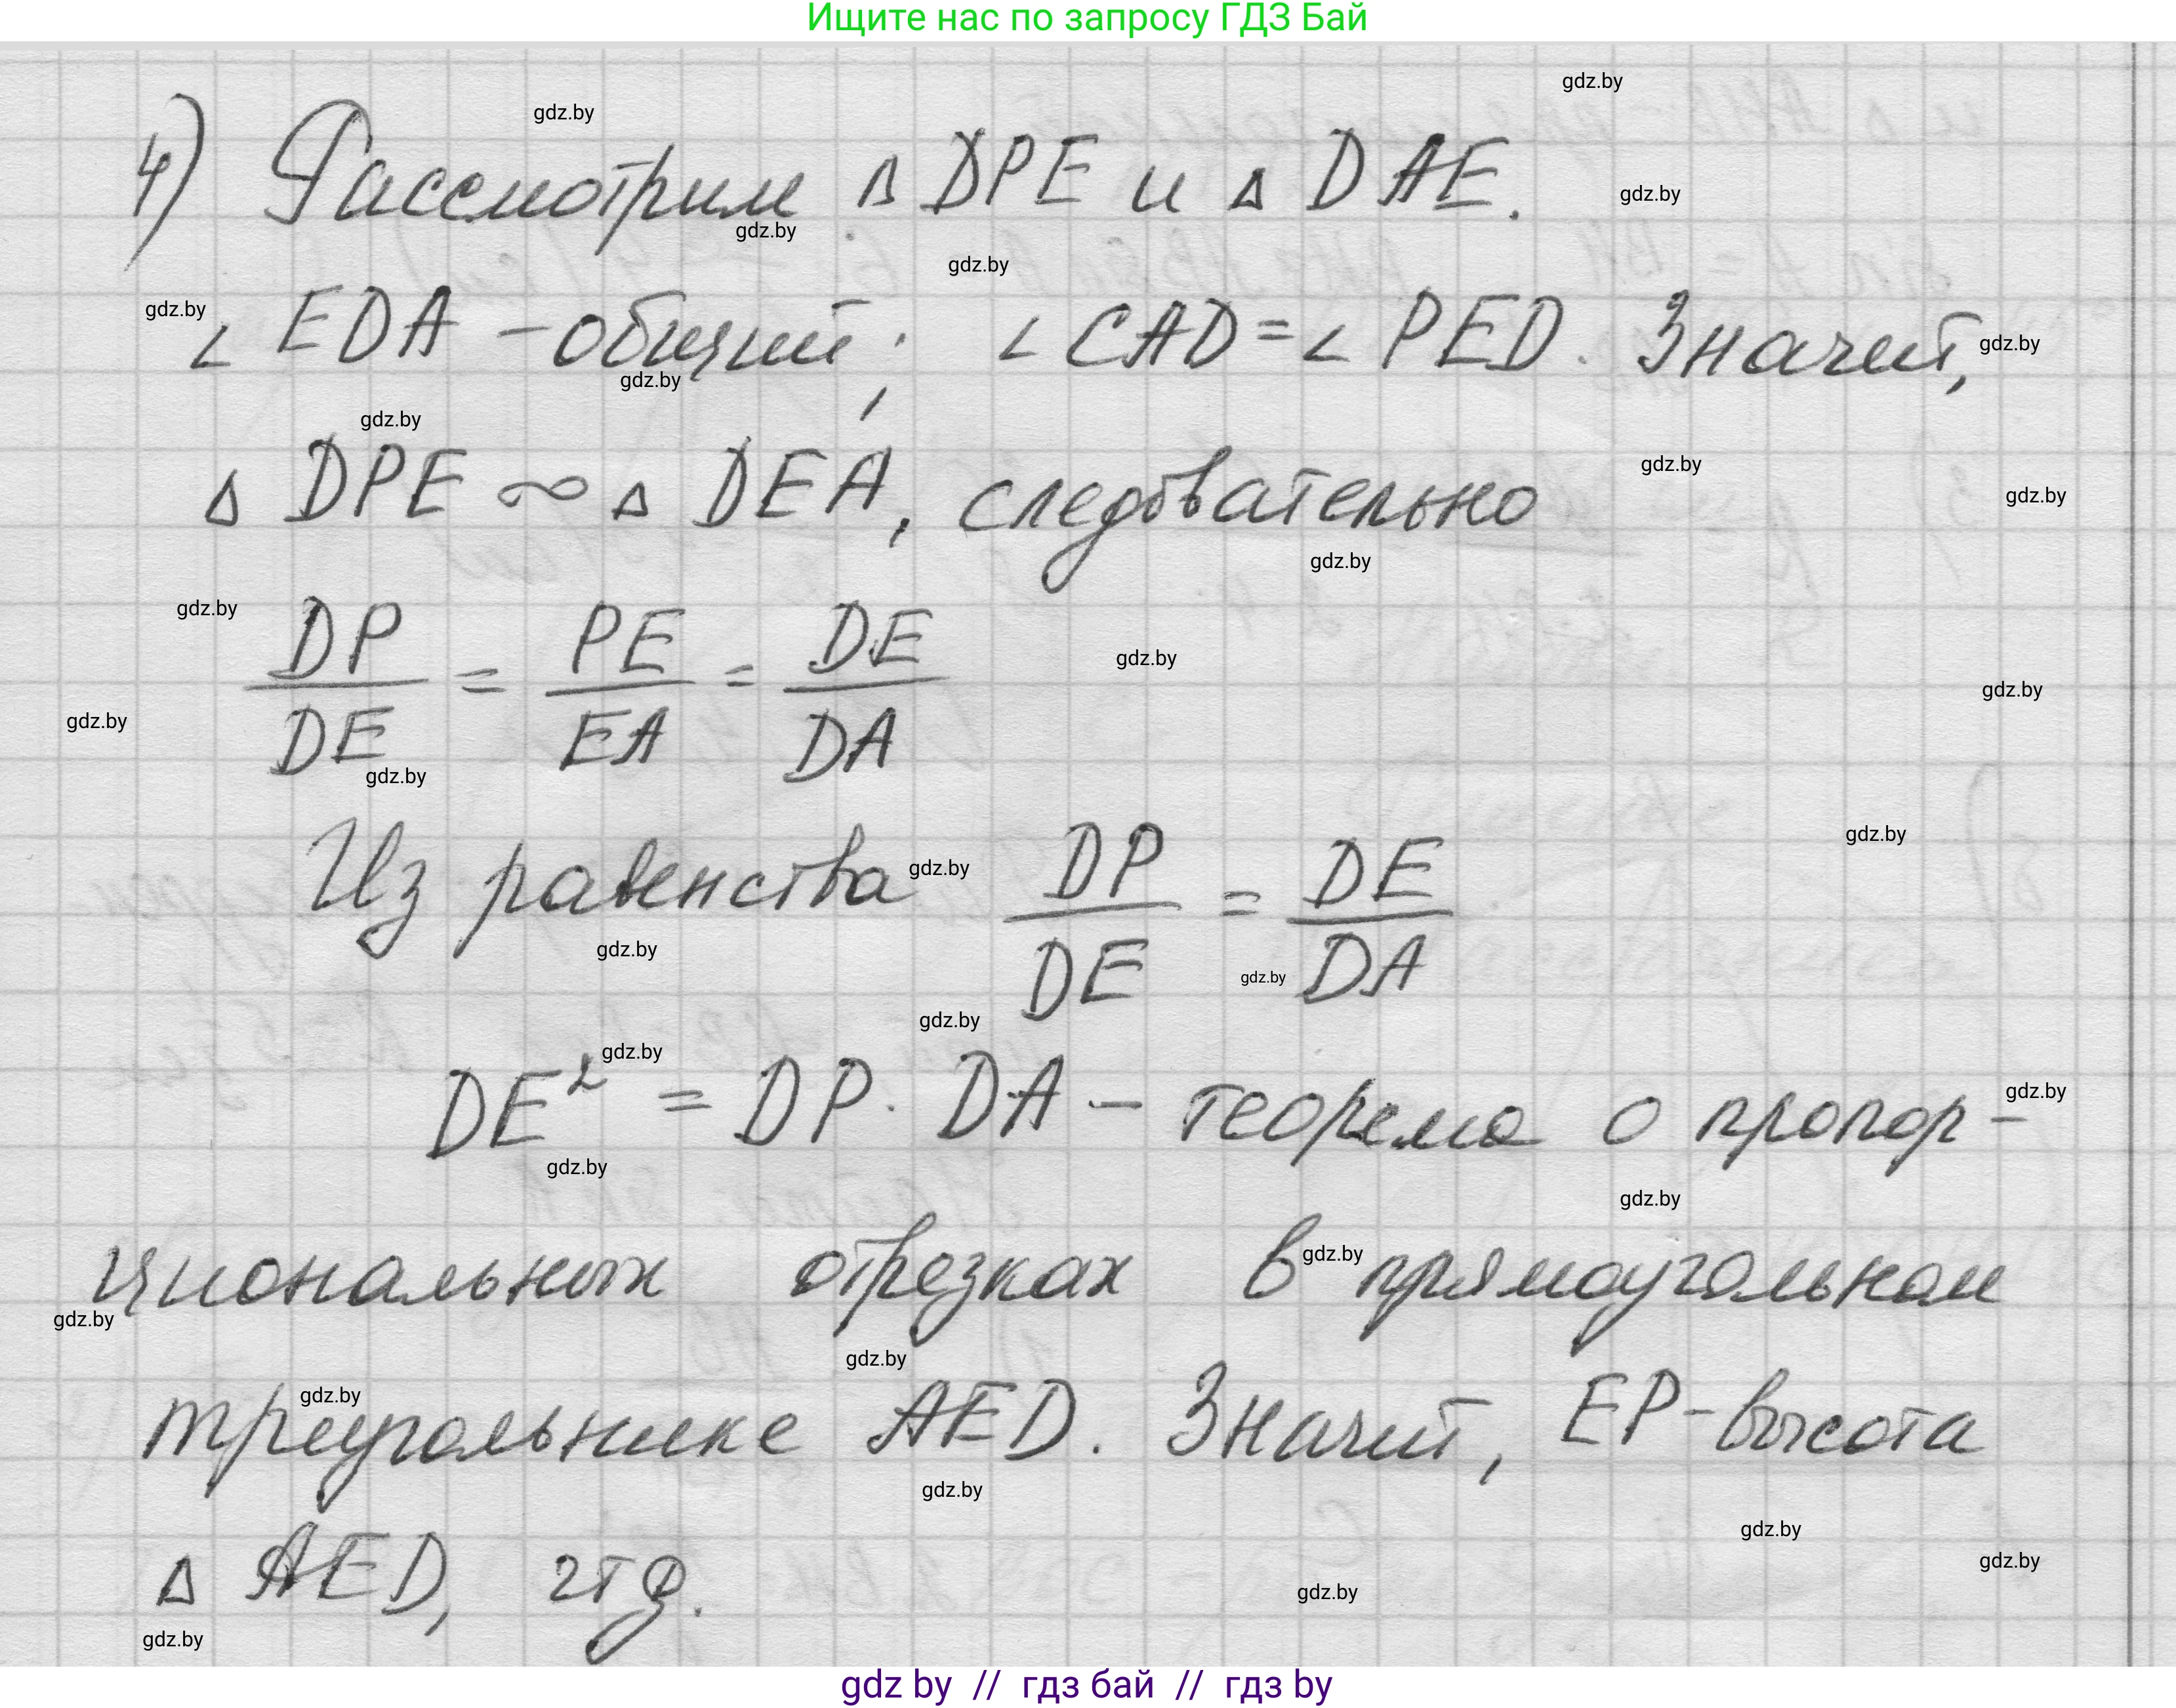 Ищите нас по запросу ГДЗ Бай
4) Рассмотрим Δ DPE и Δ DAE.
∠ EDA – общий; ∠ CAD = ∠ PED. Значит,
Δ DPE ∞ Δ DEA, следовательно
DP/DE = PE/EA = DE/DA
Из равенства DP/DE = DE/DA
DE² = DP · DA – теорема о пропор-
циональных отрезках в прямоугольном
треугольнике AED. Значит, EP – высота
Δ AED, чтд.
gdz by // гдз бай // гдз by